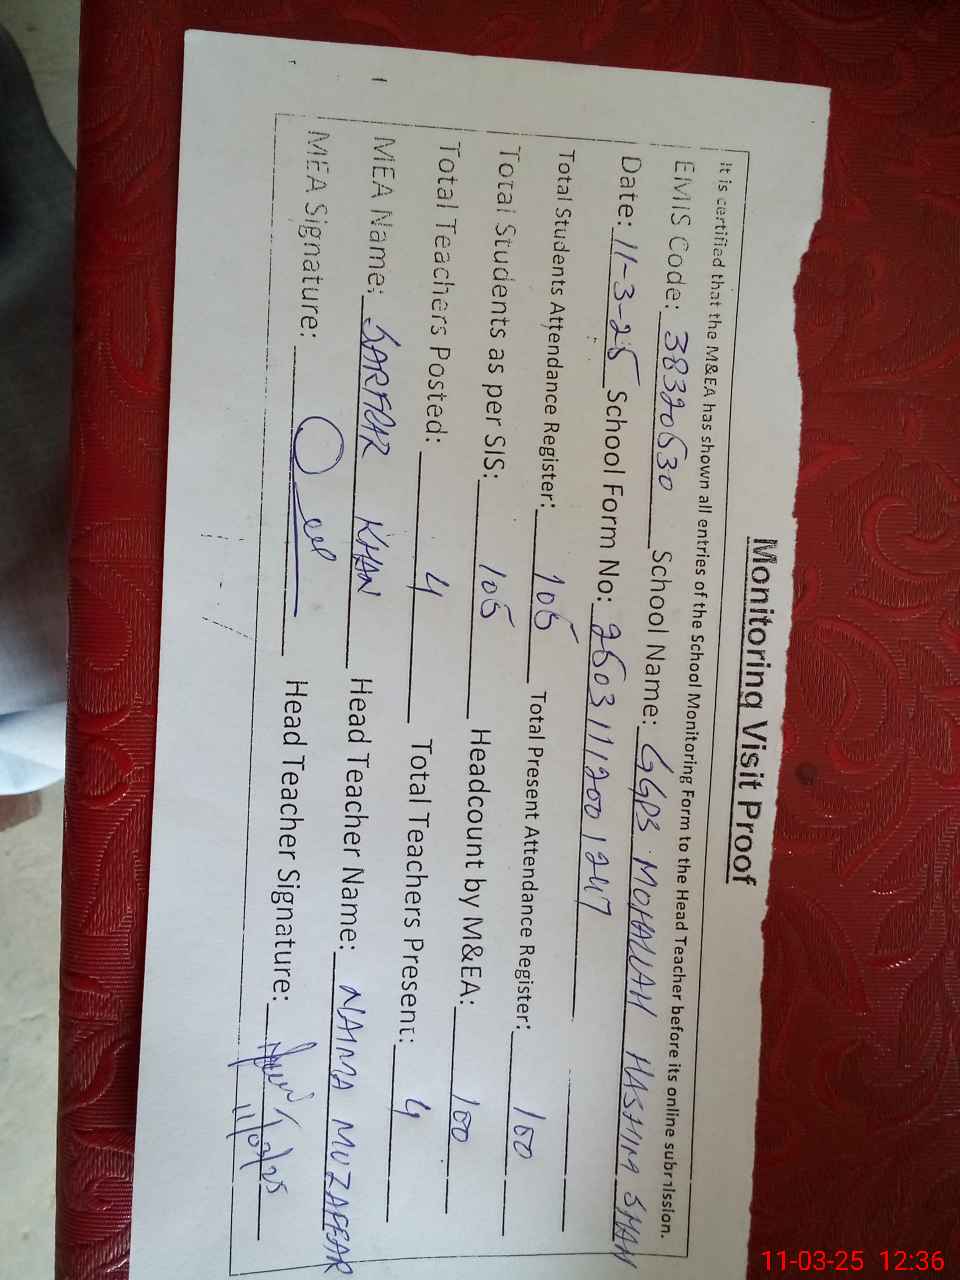 Monitoring Visit Proof
It is certified that the M&EA has shown all entries of the School Monitoring Form to the Head Teacher before its online submission.
EMIS Code: 38320530 School Name: GGPS MOHALLAH HASHIM SHAH
Date: 11-3-25 School Form No: 25031112001247
Total Students Attendance Register: 105 Total Present Attendance Register: 100
Total Students as per SIS: 105 Headcount by M&EA: 100
Total Teachers Posted: 4 Total Teachers Present: 4
MEA Name: SARFRAZ KHAN Head Teacher Name: NAIMA MUZAFFAR
MEA Signature: Head Teacher Signature:
11/03/25
11-03-25 12:36